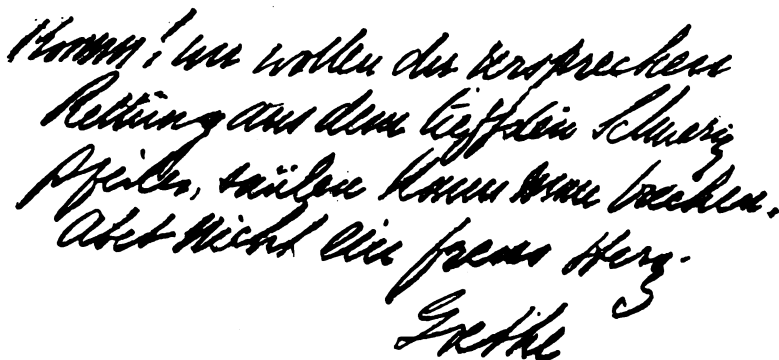 Komm! wir wollen dir versprechen
Rettung aus dem tiefsten Schmerz
Pfeiler, Säulen kann man brechen.
Aber nicht ein freies Herz.
Goethe